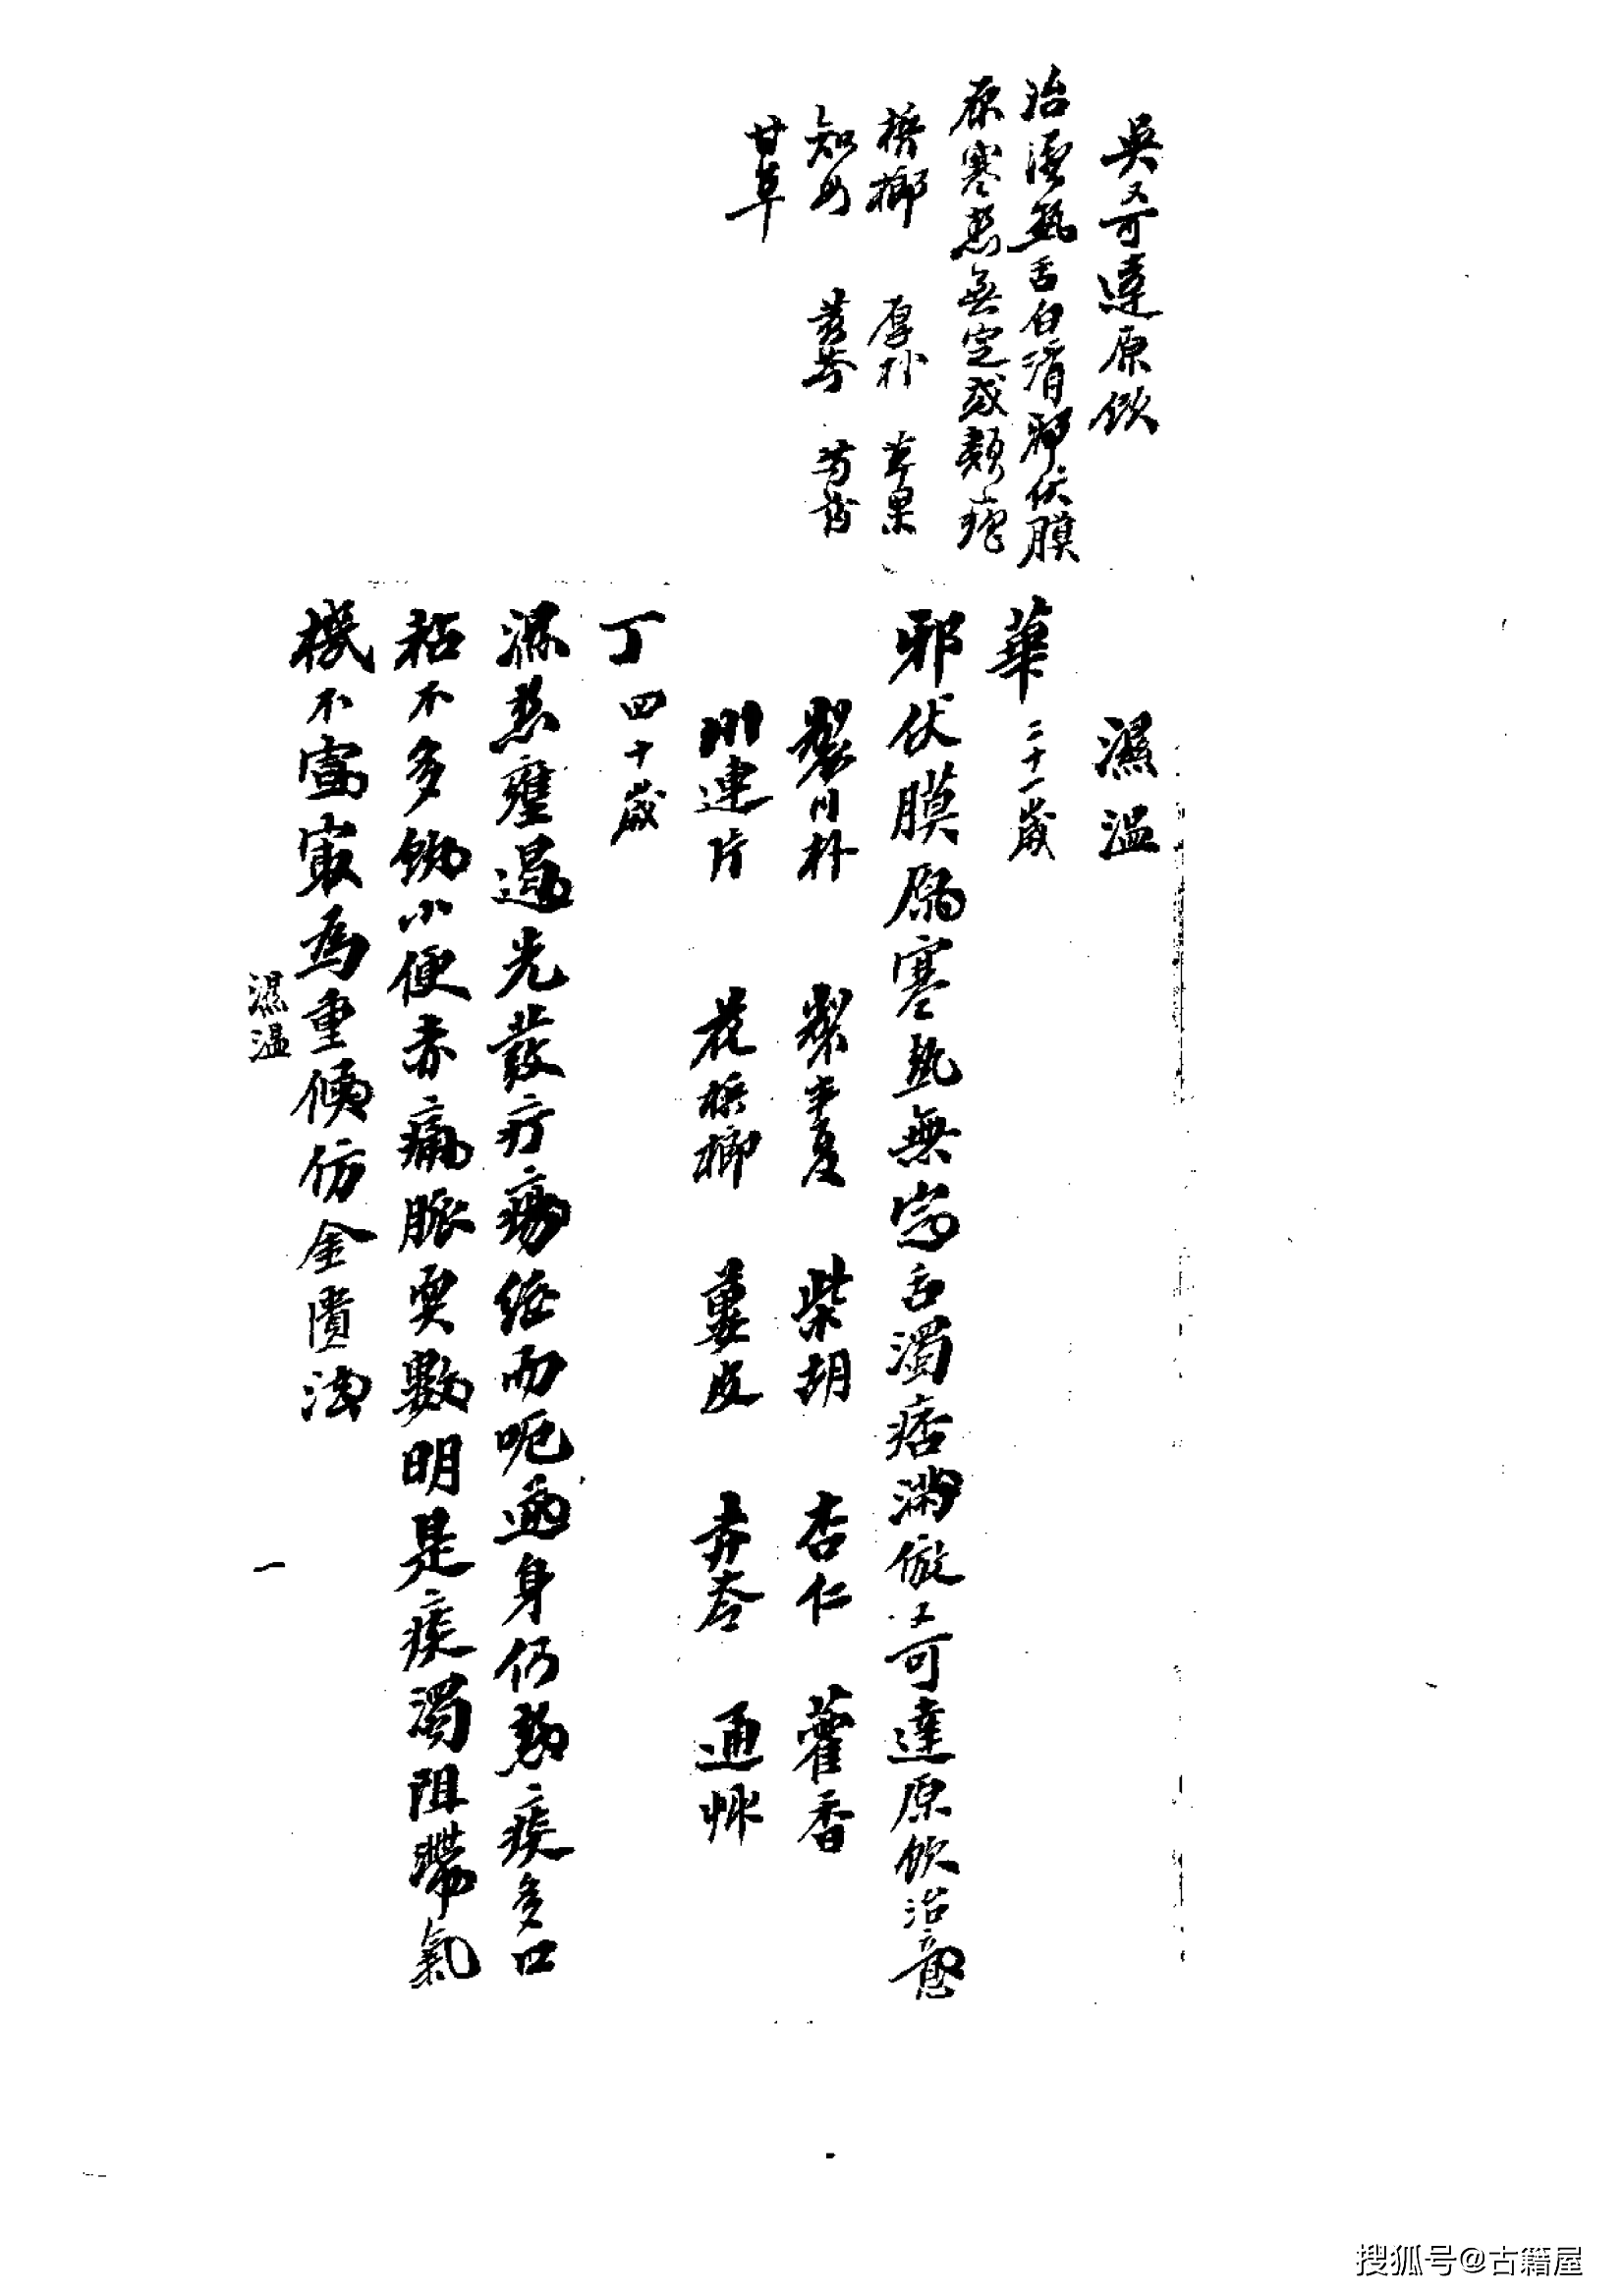 吳又可達原飲
治濕熱舌白滑邪伏膜
原寒熱無定或類瘧
檳榔 厚朴 草果
知母 黃芩 芍藥
甘草
濕溫
華二十一歲
邪伏膜原寒熱無常舌濁痞滿倣又可達原飲治意
製川朴 製半夏 柴胡 杏仁 藿香
川連片 花檳榔 蔞皮 赤苓 通艸
丁四十歲
濕熱壅遏先發疔瘍繼而呃逆身仍熱痰多口
粘不多飲小便赤痛脈耎數明是痰濁阻滯氣
機不宣最為重候仿金匱法
濕溫
一
搜狐号@古籍屋